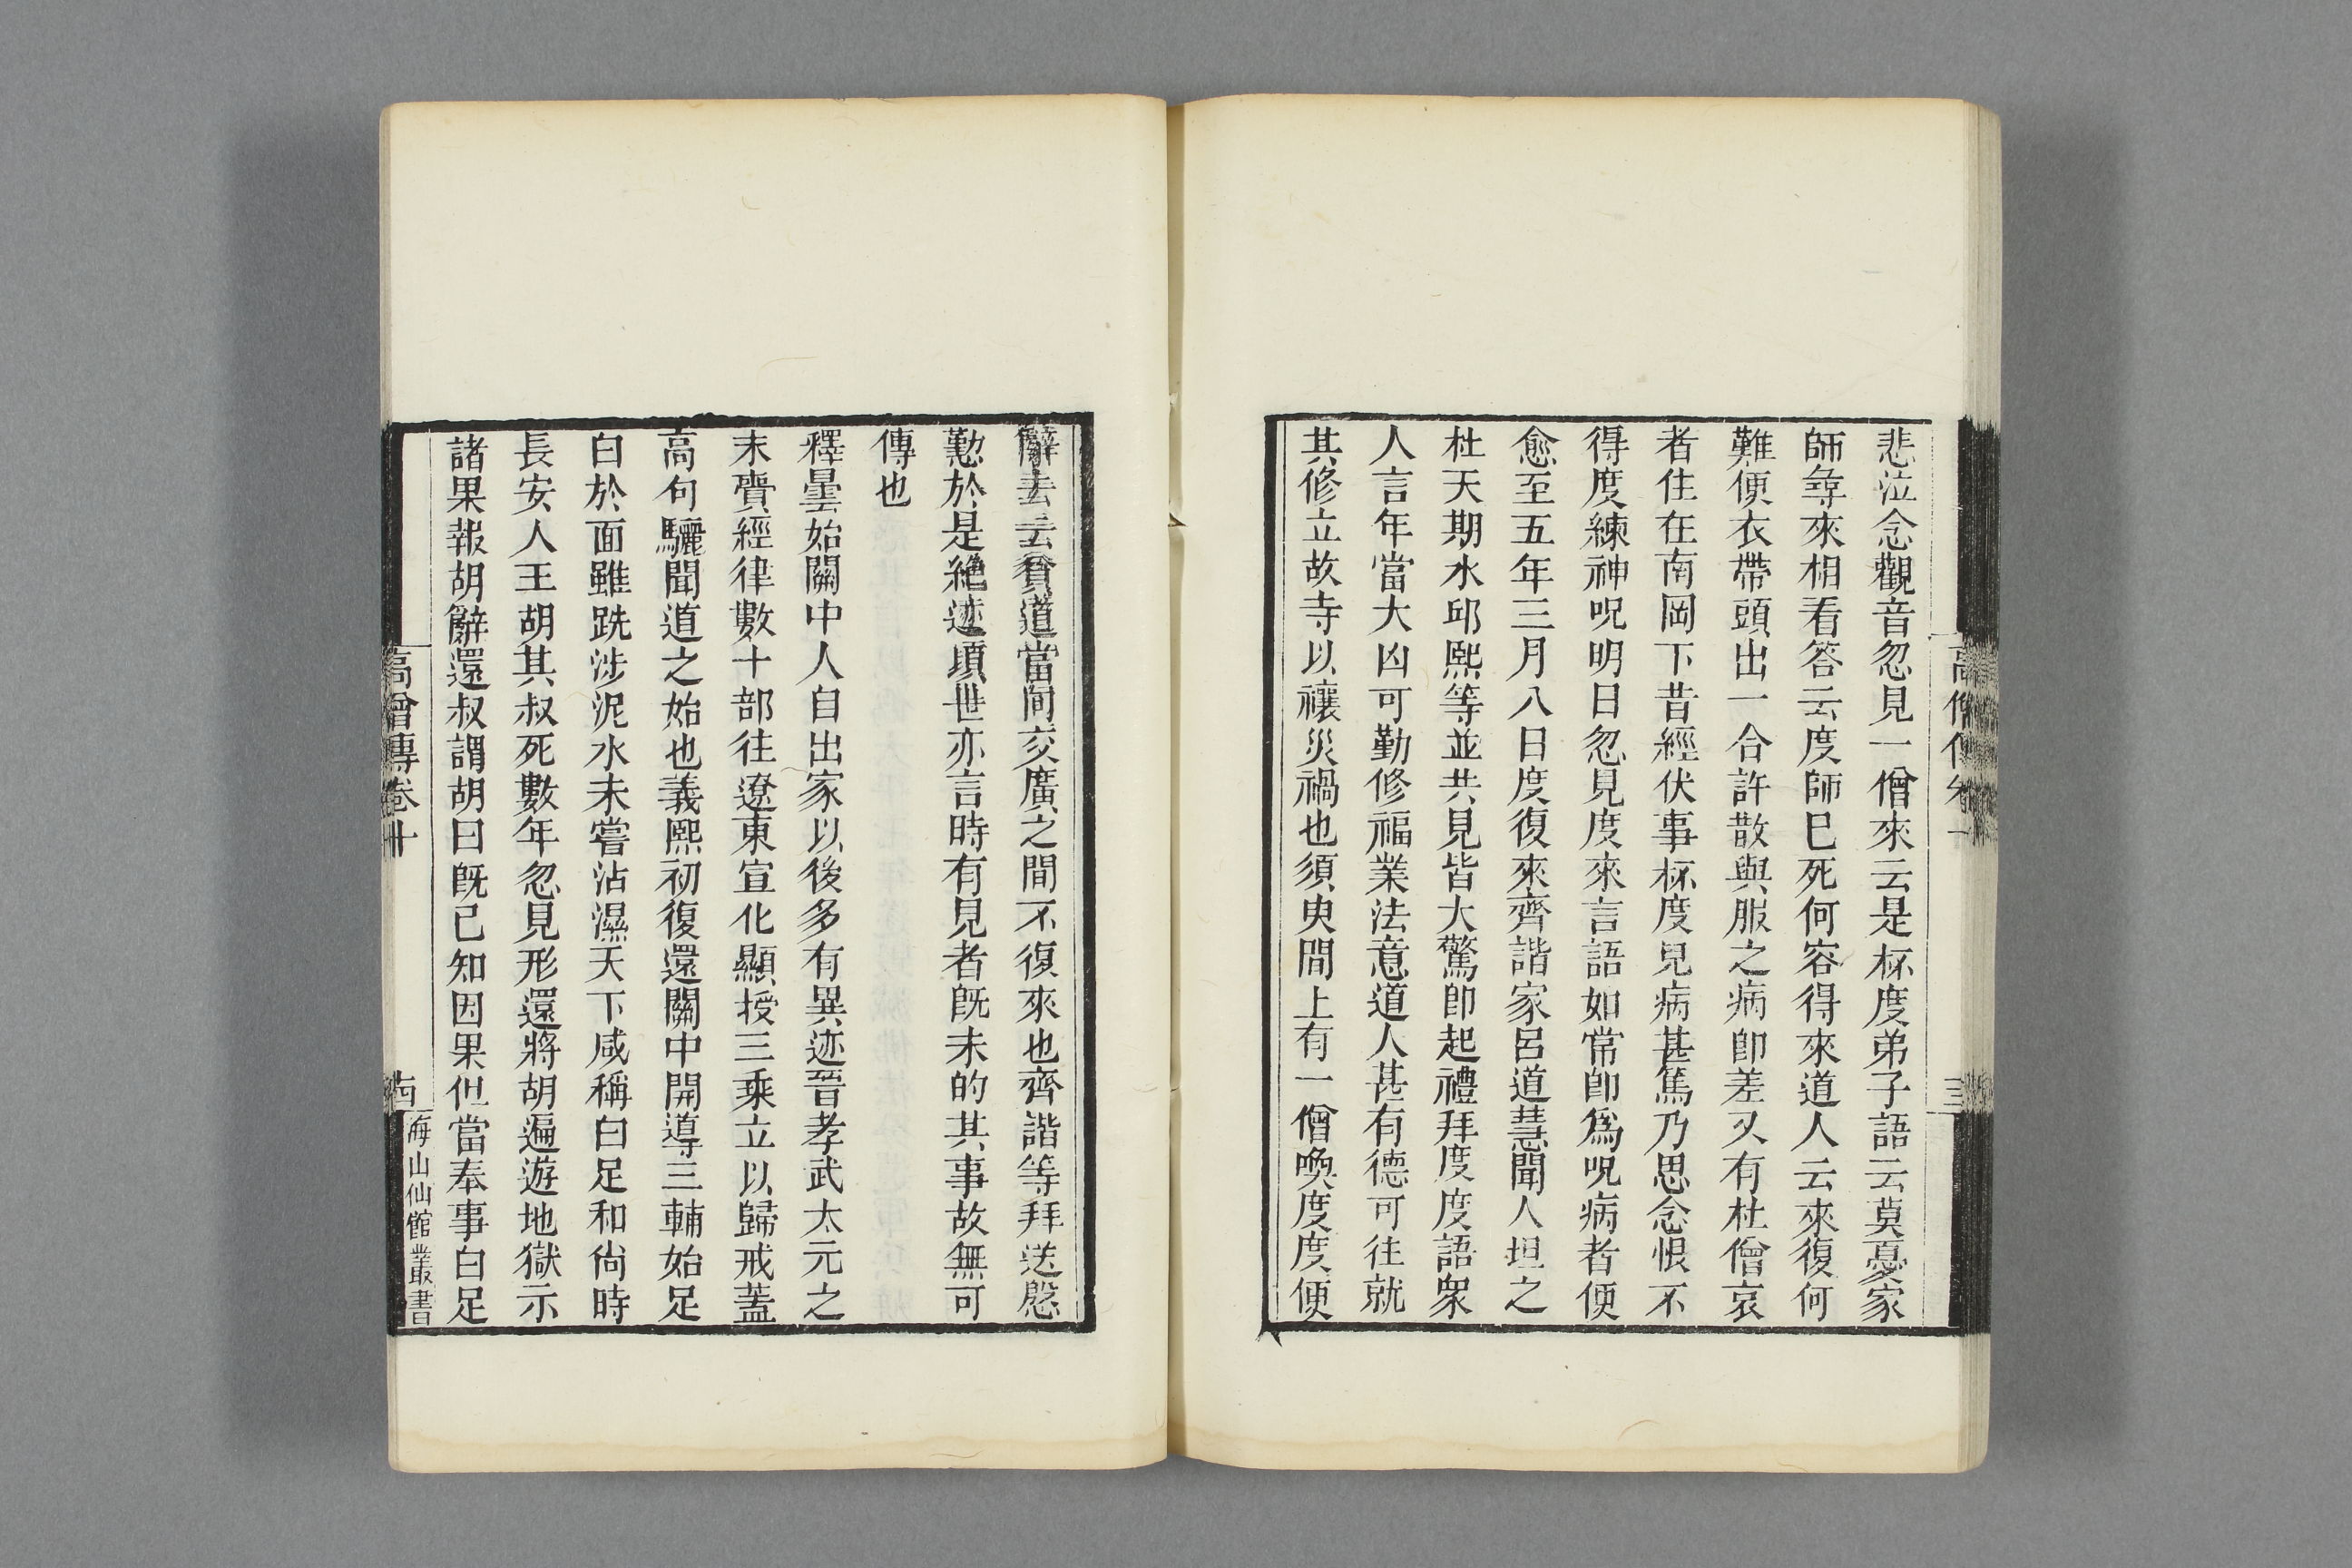 悲泣念觀音忽見一僧來云是杯度弟子語云莫憂家
師尋來相看答云度師已死何容得來道人云來復何
難便衣帶頭出一合許散與服之病卽差又有杜僧哀
者住在南岡下昔經伏事杯度兒病甚篤乃思念恨不
得度練神呪明日忽見度來言語如常卽爲呪病者便
愈至五年三月八日度復來齊諧家呂道慧聞人坦之
杜天期水邱熙等並共見皆大驚卽起禮拜度度語衆
人言年當大凶可勤修福業法意道人甚有德可往就
其修立故寺以禳災禍也須臾間上有一僧喚度度便
辭去云貧道當向交廣之間不復來也齊諧等拜送慇
懃於是絶迹頃世亦言時有見者旣未的其事故無可
傳也
釋曇始關中人自出家以後多有異迹晉孝武太元之
末賷經律數十部往遼東宣化顯授三乘立以歸戒蓋
高句驪聞道之始也義熙初復還關中開導三輔始足
白於面雖跣涉泥水未嘗沾濕天下咸稱白足和尙時
長安人王胡其叔死數年忽見形還將胡遍遊地獄示
諸果報胡辭還叔謂胡曰旣已知因果但當奉事白足
高僧傳卷十
海山仙館叢書